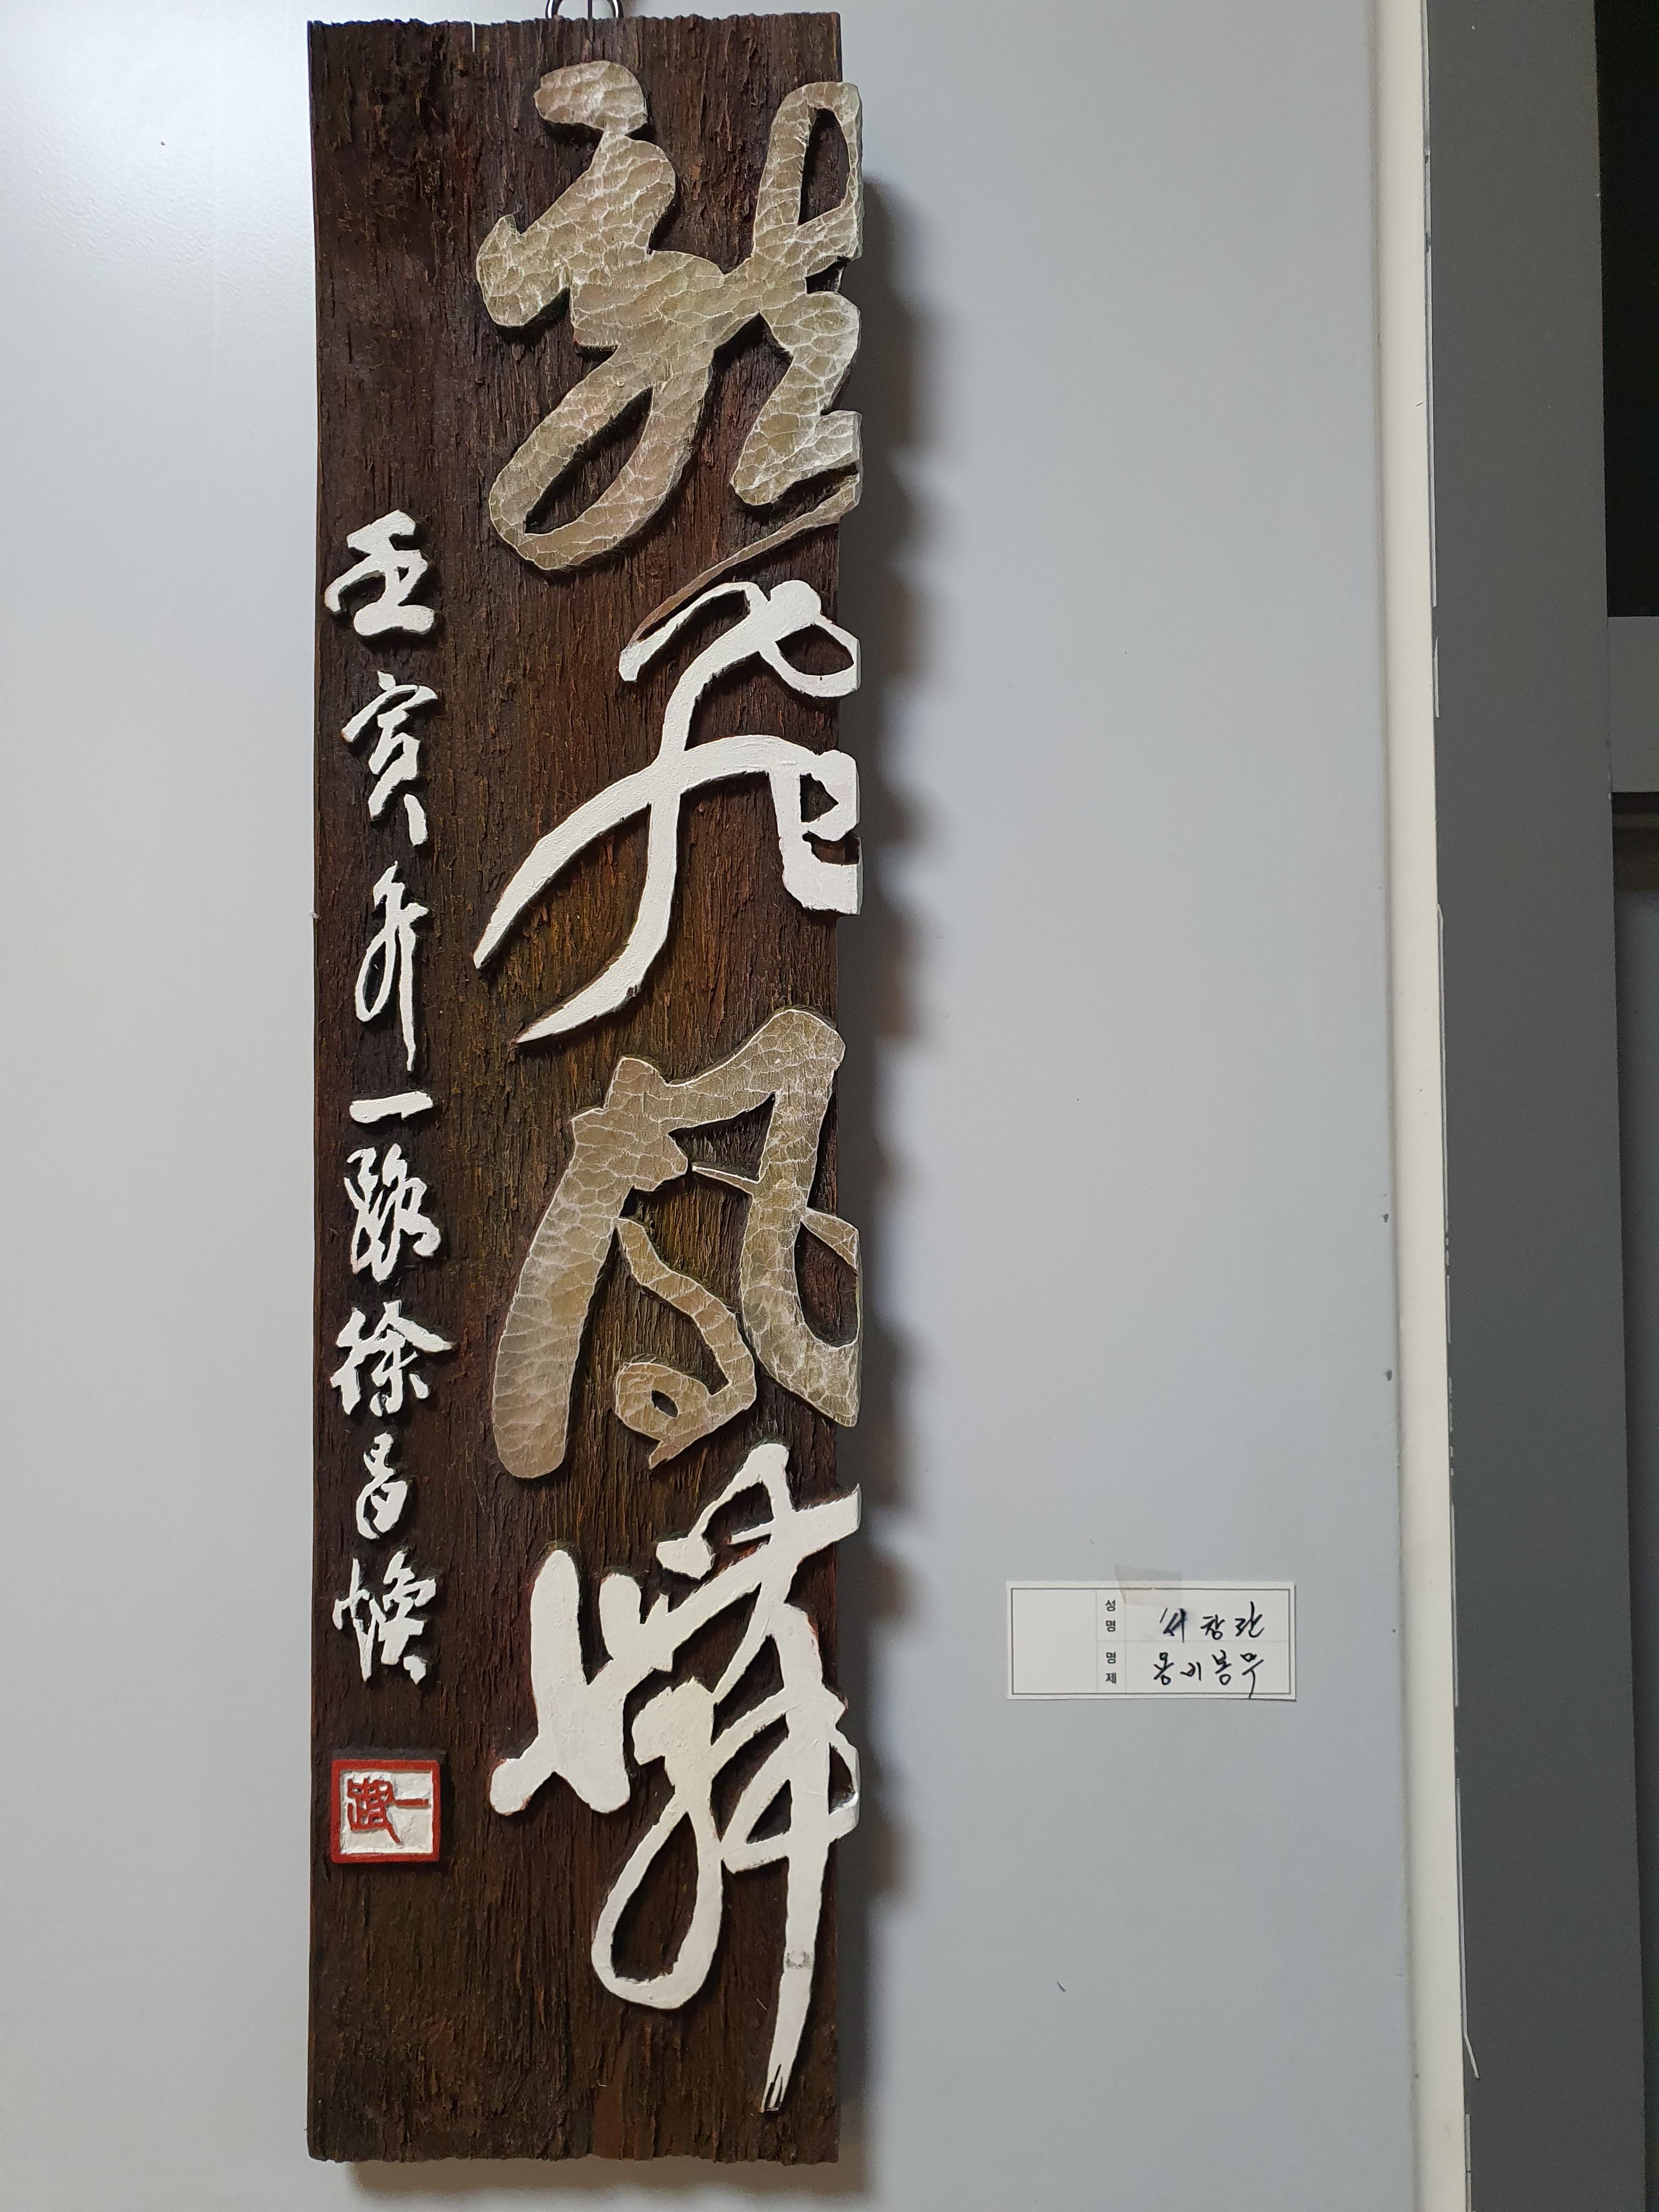 龍飛鳳舞
壬寅年 一路 徐昌煥
一路
성명 서창환
명제 용비봉무